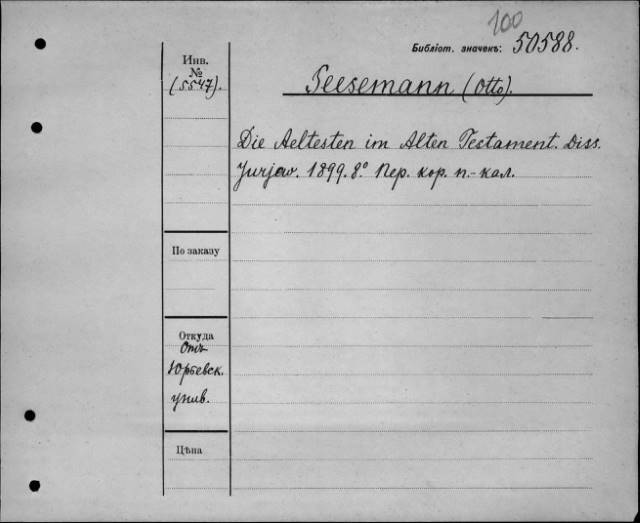 100
Библіот. значекъ: 50588.
Инв.
№
(5547).
Seesemann (Otto).
Die Aeltesten im Alten Testament. Diss.
Jurjew. 1899. 8° Пер. кор. п.-кал.
По заказу
Откуда
Отъ
Юрьевск.
унив.
Цѣна